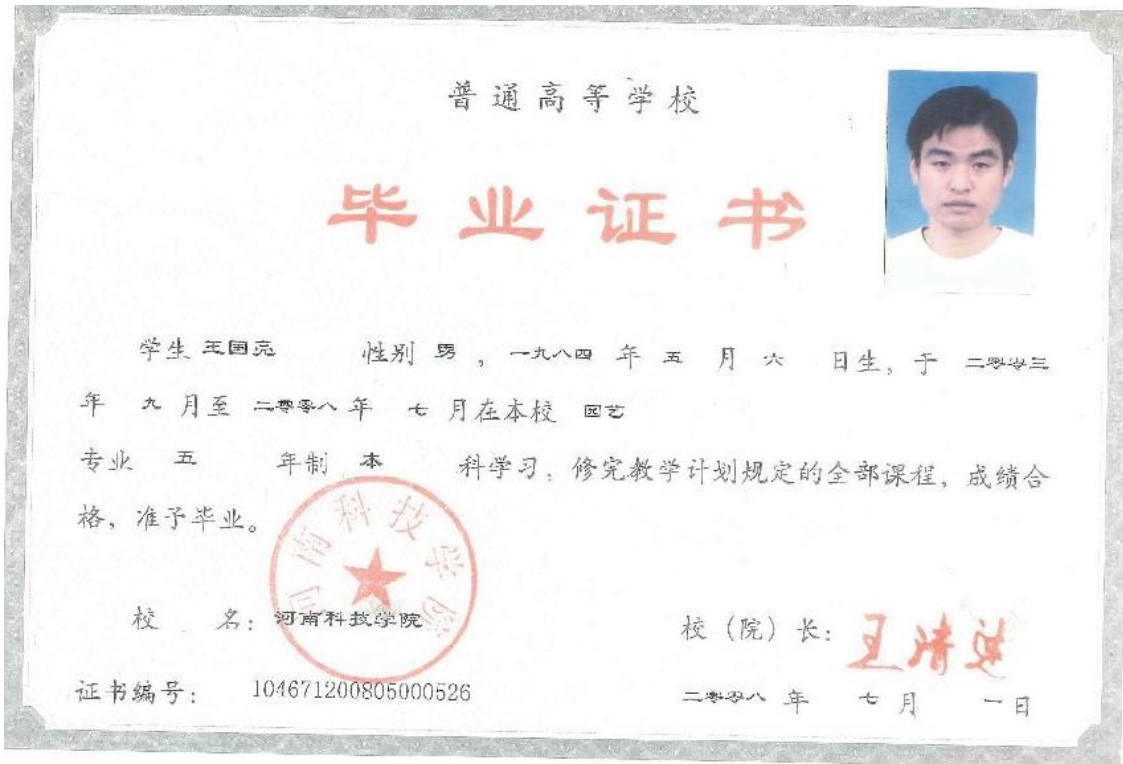 普通高等学校
毕业证书
学生 王国亮 性别 男 ，一九八四 年 五 月 六 日生，于 二零零三
年 九 月至 二零零八 年 七 月在本校 园艺
专业 五 年制 本 科学习，修完教学计划规定的全部课程，成绩合
格，准予毕业。
河南科技学院
校 名：河南科技学院 校（院）长：王清连
证书编号： 104671200805000526 二零零八 年 七 月 一 日